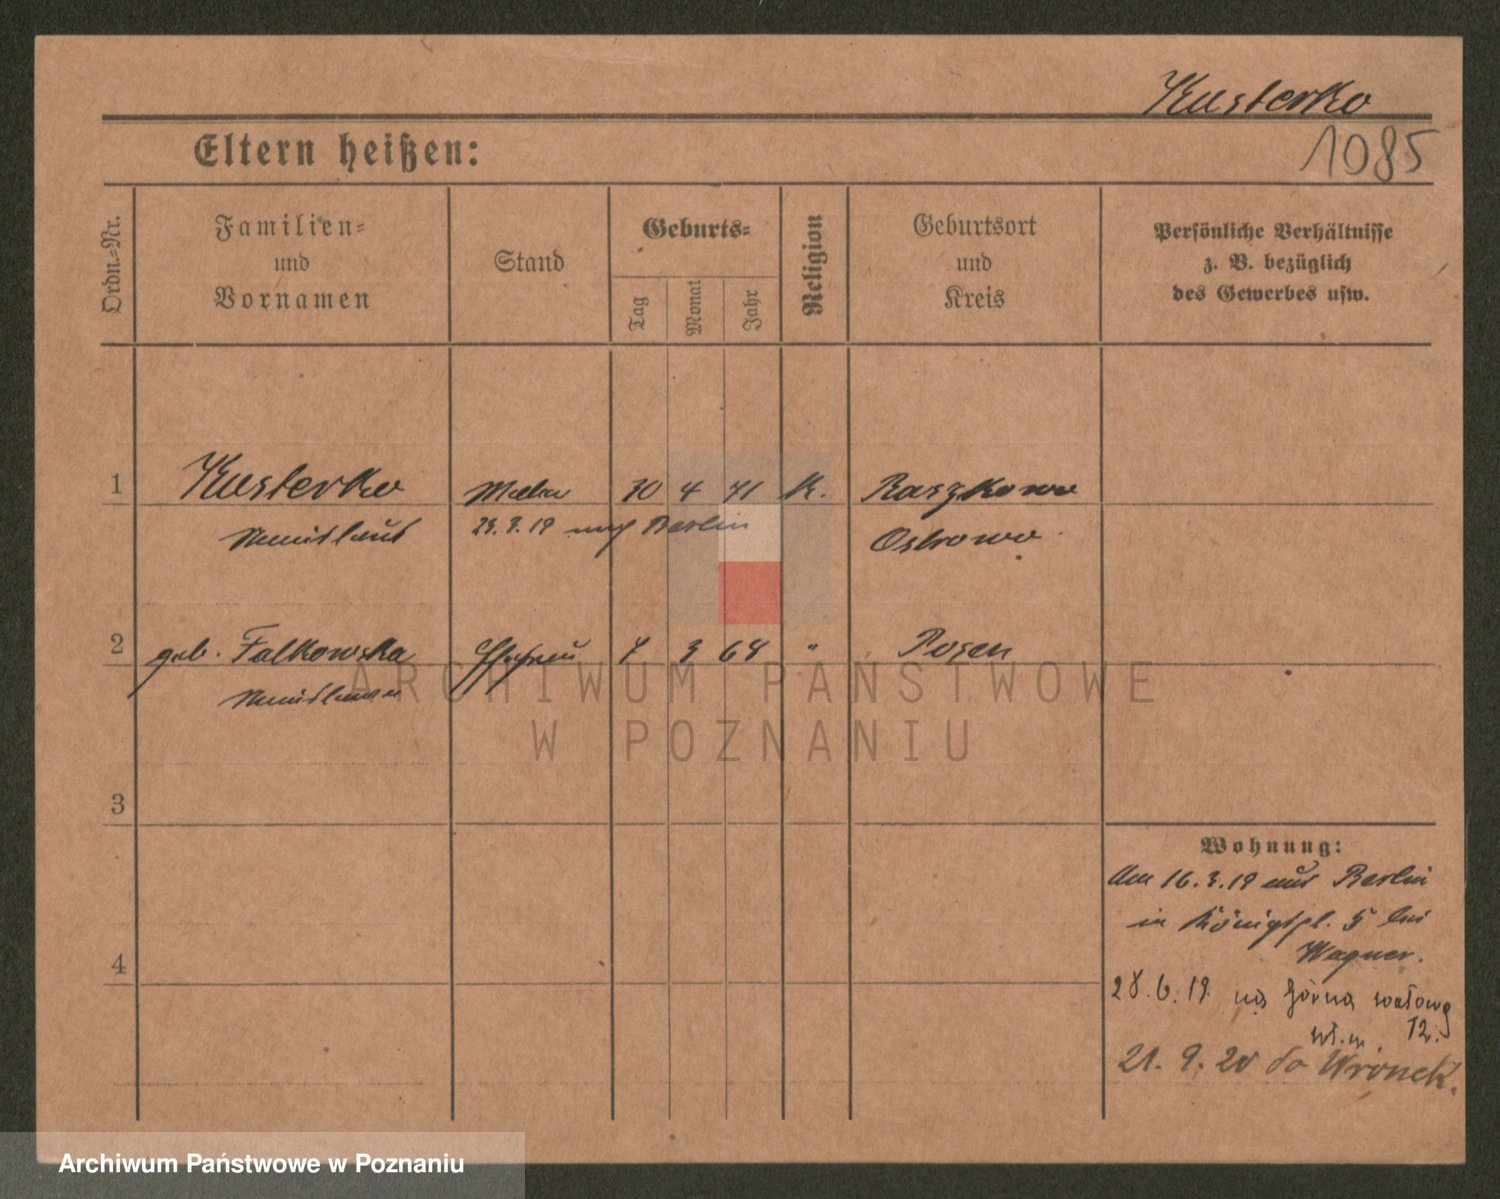 Kusterko
1085
Eltern heißen:
Ordn.-Nr.
Familien-
und
Vornamen
Stand
Geburts-
Tag
Monat
Jahr
Religion
Geburtsort
und
Kreis
Persönliche Verhältnisse
z. B. bezüglich
des Gewerbes usw.
1
Kusterko
Maler
30 4 71
K.
Raszkowo
23. 3. 19 nach Berlin
Ostrowo
2
geb. Falkowska
Ehefrau
3 64
"
Posen
3
4
Wohnung:
Am 16. 3. 19 aus Berlin
in Königspl. 5 bei
Wagner.
28. 6. 19. na Górna wałową
12.
21. 9. 20 do Wronek.
ARCHIWUM PAŃSTWOWE
W POZNANIU
Archiwum Państwowe w Poznaniu